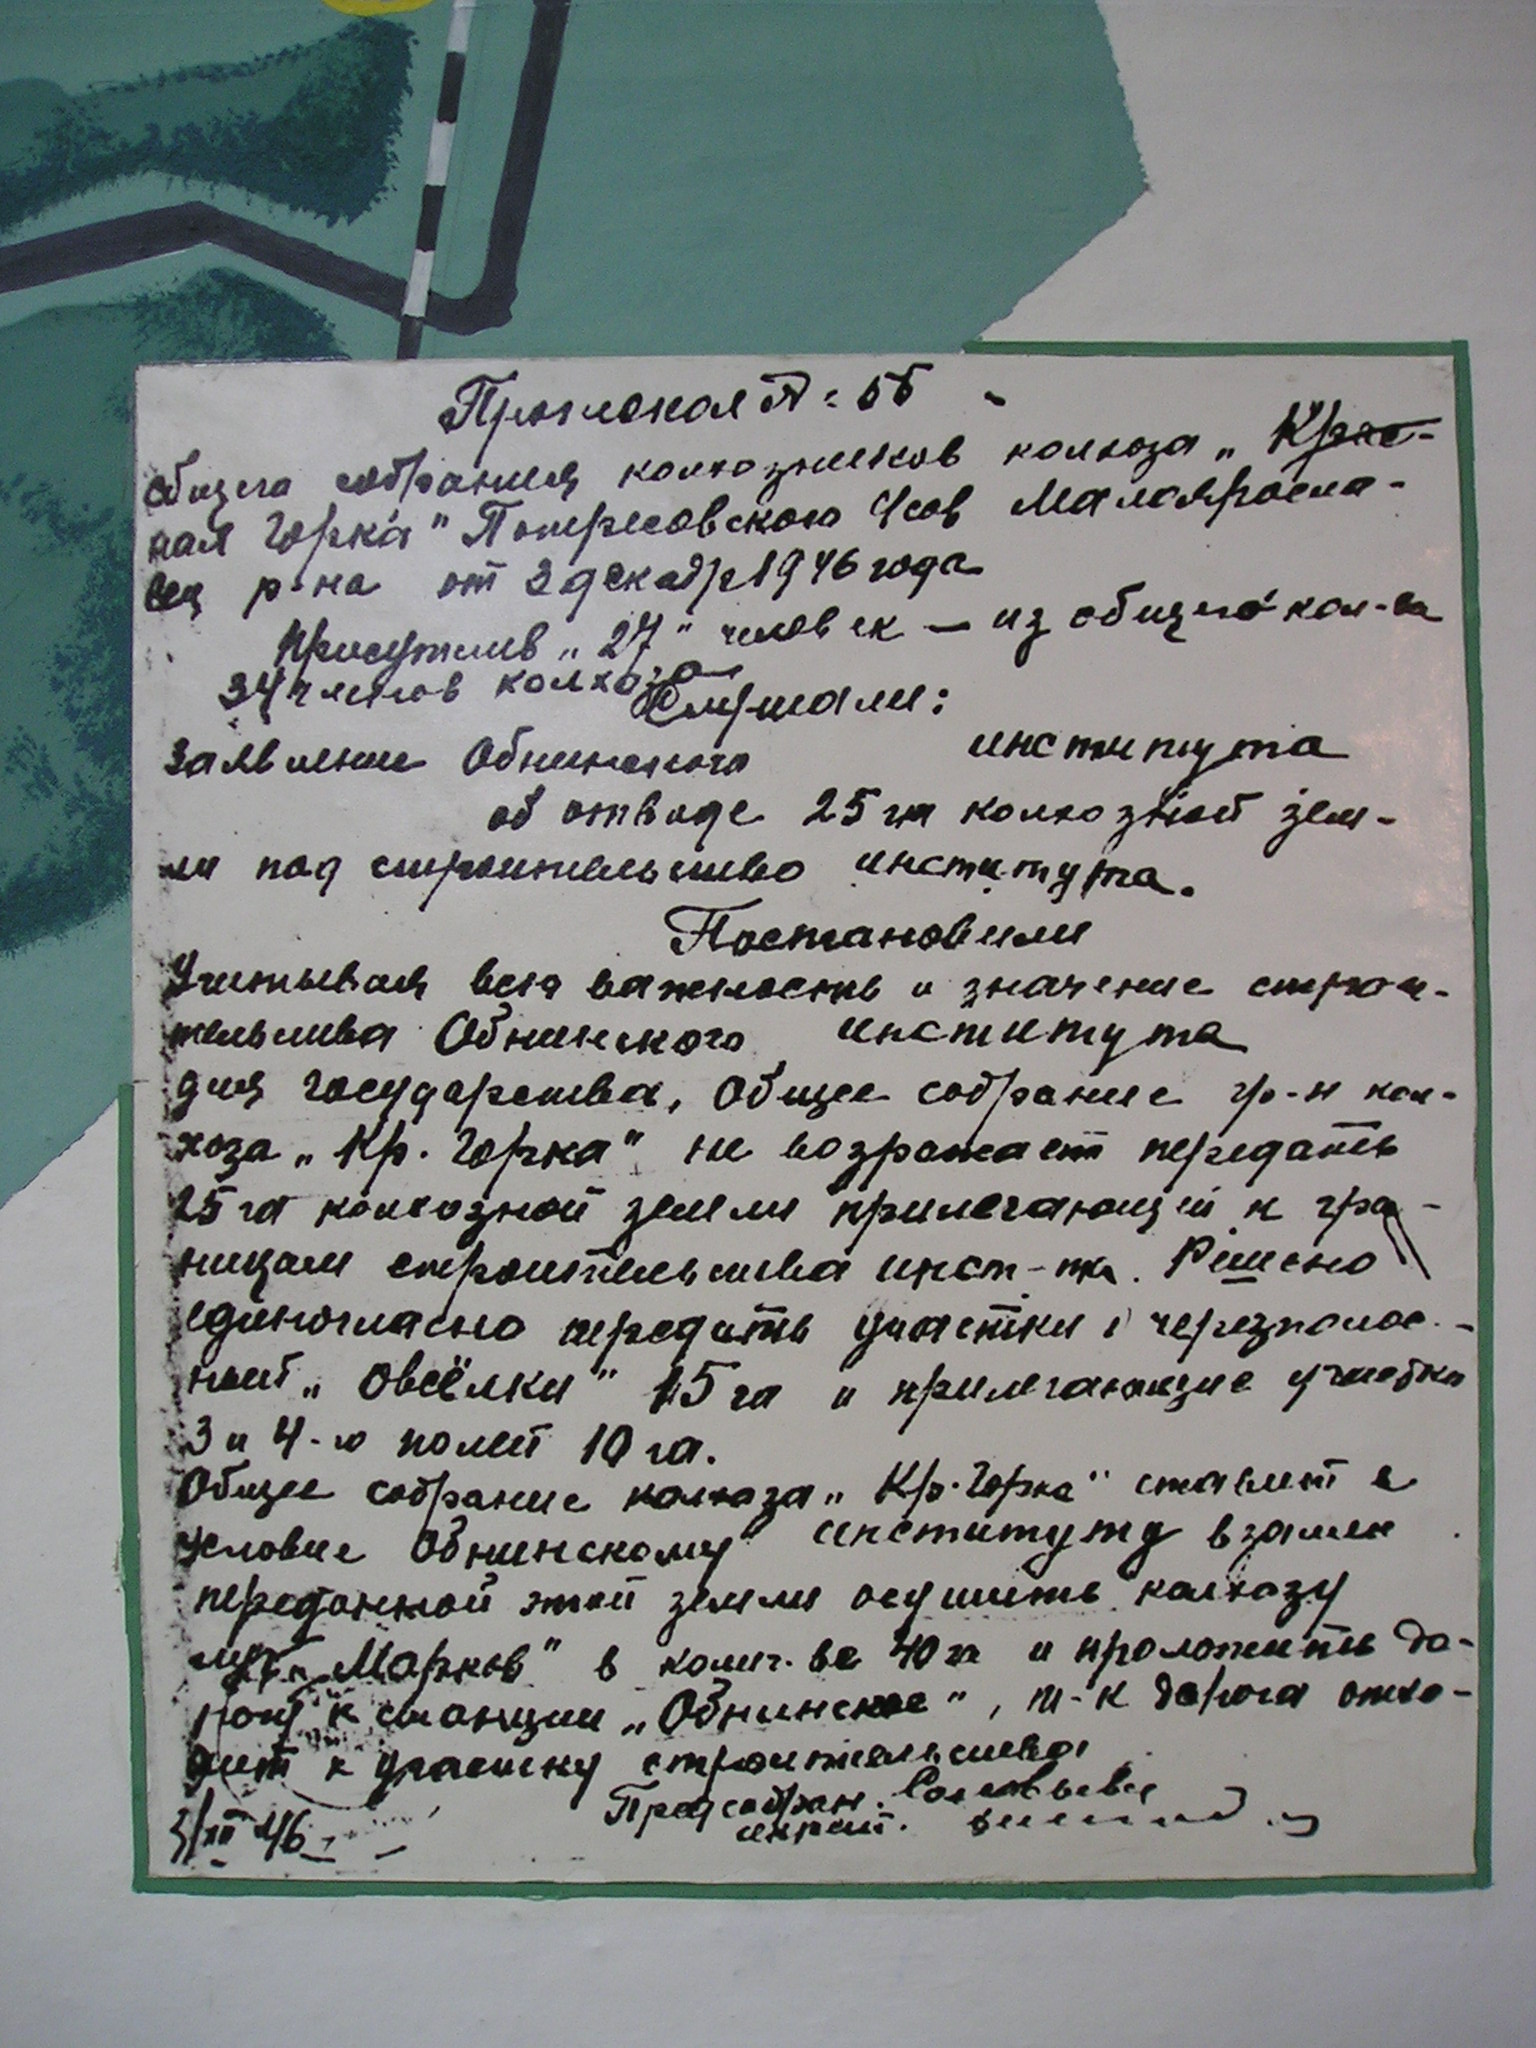 Протокол № 5б
общего собрания колхозников колхоза „Крас-
ная Горка" Потресовского Малояросла-
вец р-на от 2 декабр 1946 года
Присутств „27" человек — из общего кол-ва
34 членов колхоза
Слушали:
Заявление Обнинского института
об отводе 25 га колхозной зем-
ли под строительство института.
Постановили
Учитывая всю важность и значение строи-
тельства Обнинского института
для государства, Общее собрание гр-н кол-
хоза „Кр. Горка" не возражает передать
25 га колхозной земли прилегающей к гра-
ницам строительства инст-та. Решено
единогласно передать участки: черезполос-
ный „Овсёлки" 15 га и прилегающие участки
3 и 4-го полей 10 га.
Общее собрание колхоза „Кр. Горка" ставит в
условие Обнинскому институту взамен
переданной этой земли осушить колхозу
„Марков" в колич-ве 40 га и проложить до-
рогу к станции „Обнинское", т-к дорога отхо-
дит к участку строительства
Пред собран. Соловьева
секрет.
3/XII 46